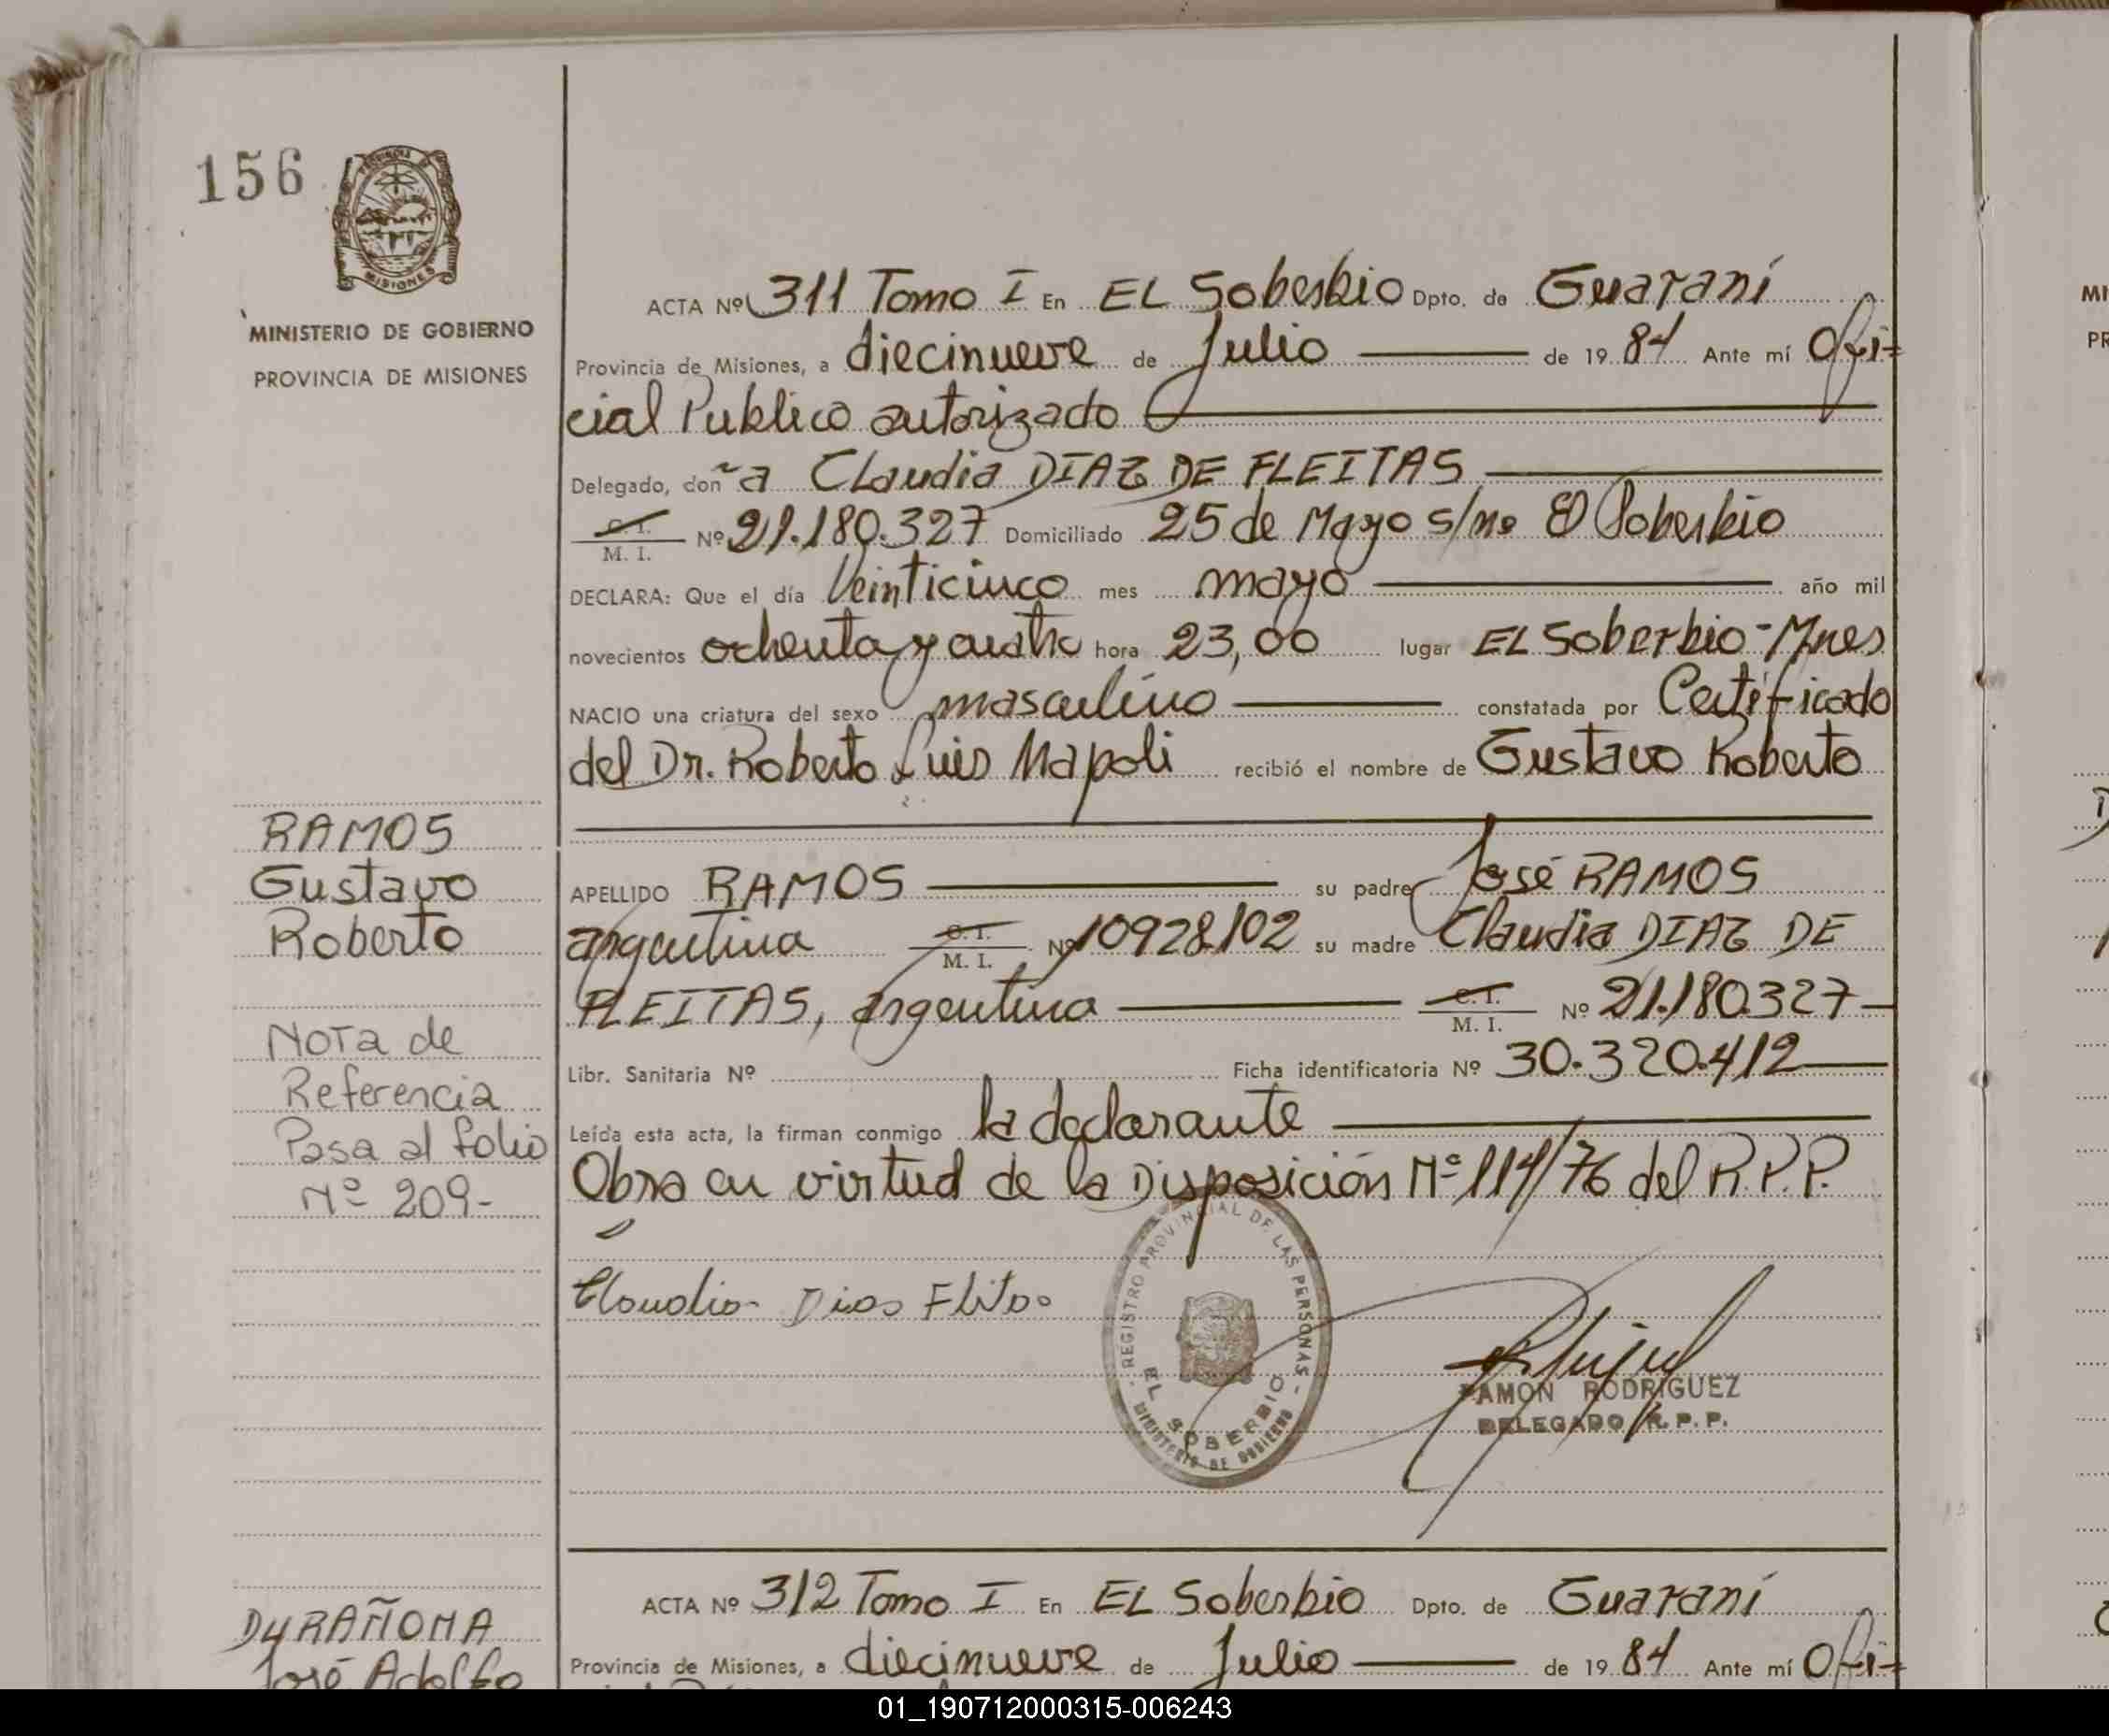 156
PROVINCIA DE
MISIONES
MINISTERIO DE GOBIERNO
PROVINCIA DE MISIONES
ACTA Nº 311 Tomo I En EL Soberbio Dpto. de Guaraní
Provincia de Misiones, a diecinueve de Julio de 19 84 Ante mí Ofi-
cial Publico autorizado
Delegado, doña Claudia DIAZ DE FLEITAS
C. I.
M. I. Nº 21.180.327 Domiciliado 25 de Mayo s/nº El Soberbio
DECLARA: Que el día Veinticinco mes mayo año mil
novecientos ochenta y cuatro hora 23,00 lugar EL Soberbio - Mnes
NACIO una criatura del sexo masculino constatada por Certificado
del Dr. Roberto Luis Napoli recibió el nombre de Gustavo Roberto
RAMOS
Gustavo
Roberto
Nota de
Referencia
Pasa al folio
Nº 209-
APELLIDO RAMOS su padre José RAMOS
argentina C. I. M. I. Nº 10928102 su madre Claudia DIAZ DE
FLEITAS, argentina C. I. M. I. Nº 21.180.327
Libr. Sanitaria Nº Ficha identificatoria Nº 30.320.412
Leída esta acta, la firman conmigo la declarante
Obra en virtud de la Disposición Nº 114/76 del R.P.P.
Claudia Dias Flitas
REGISTRO PROVINCIAL DE LAS PERSONAS
EL SOBERBIO
MINISTERIO DE GOBIERNO
RAMON RODRIGUEZ
DELEGADO R. P. P.
ACTA Nº 312 Tomo I En EL Soberbio Dpto. de Guaraní
Provincia de Misiones, a diecinueve de Julio de 19 84 Ante mí Ofi-
DURAÑONA
José Adolfo
MI
PR
01_190712000315-006243